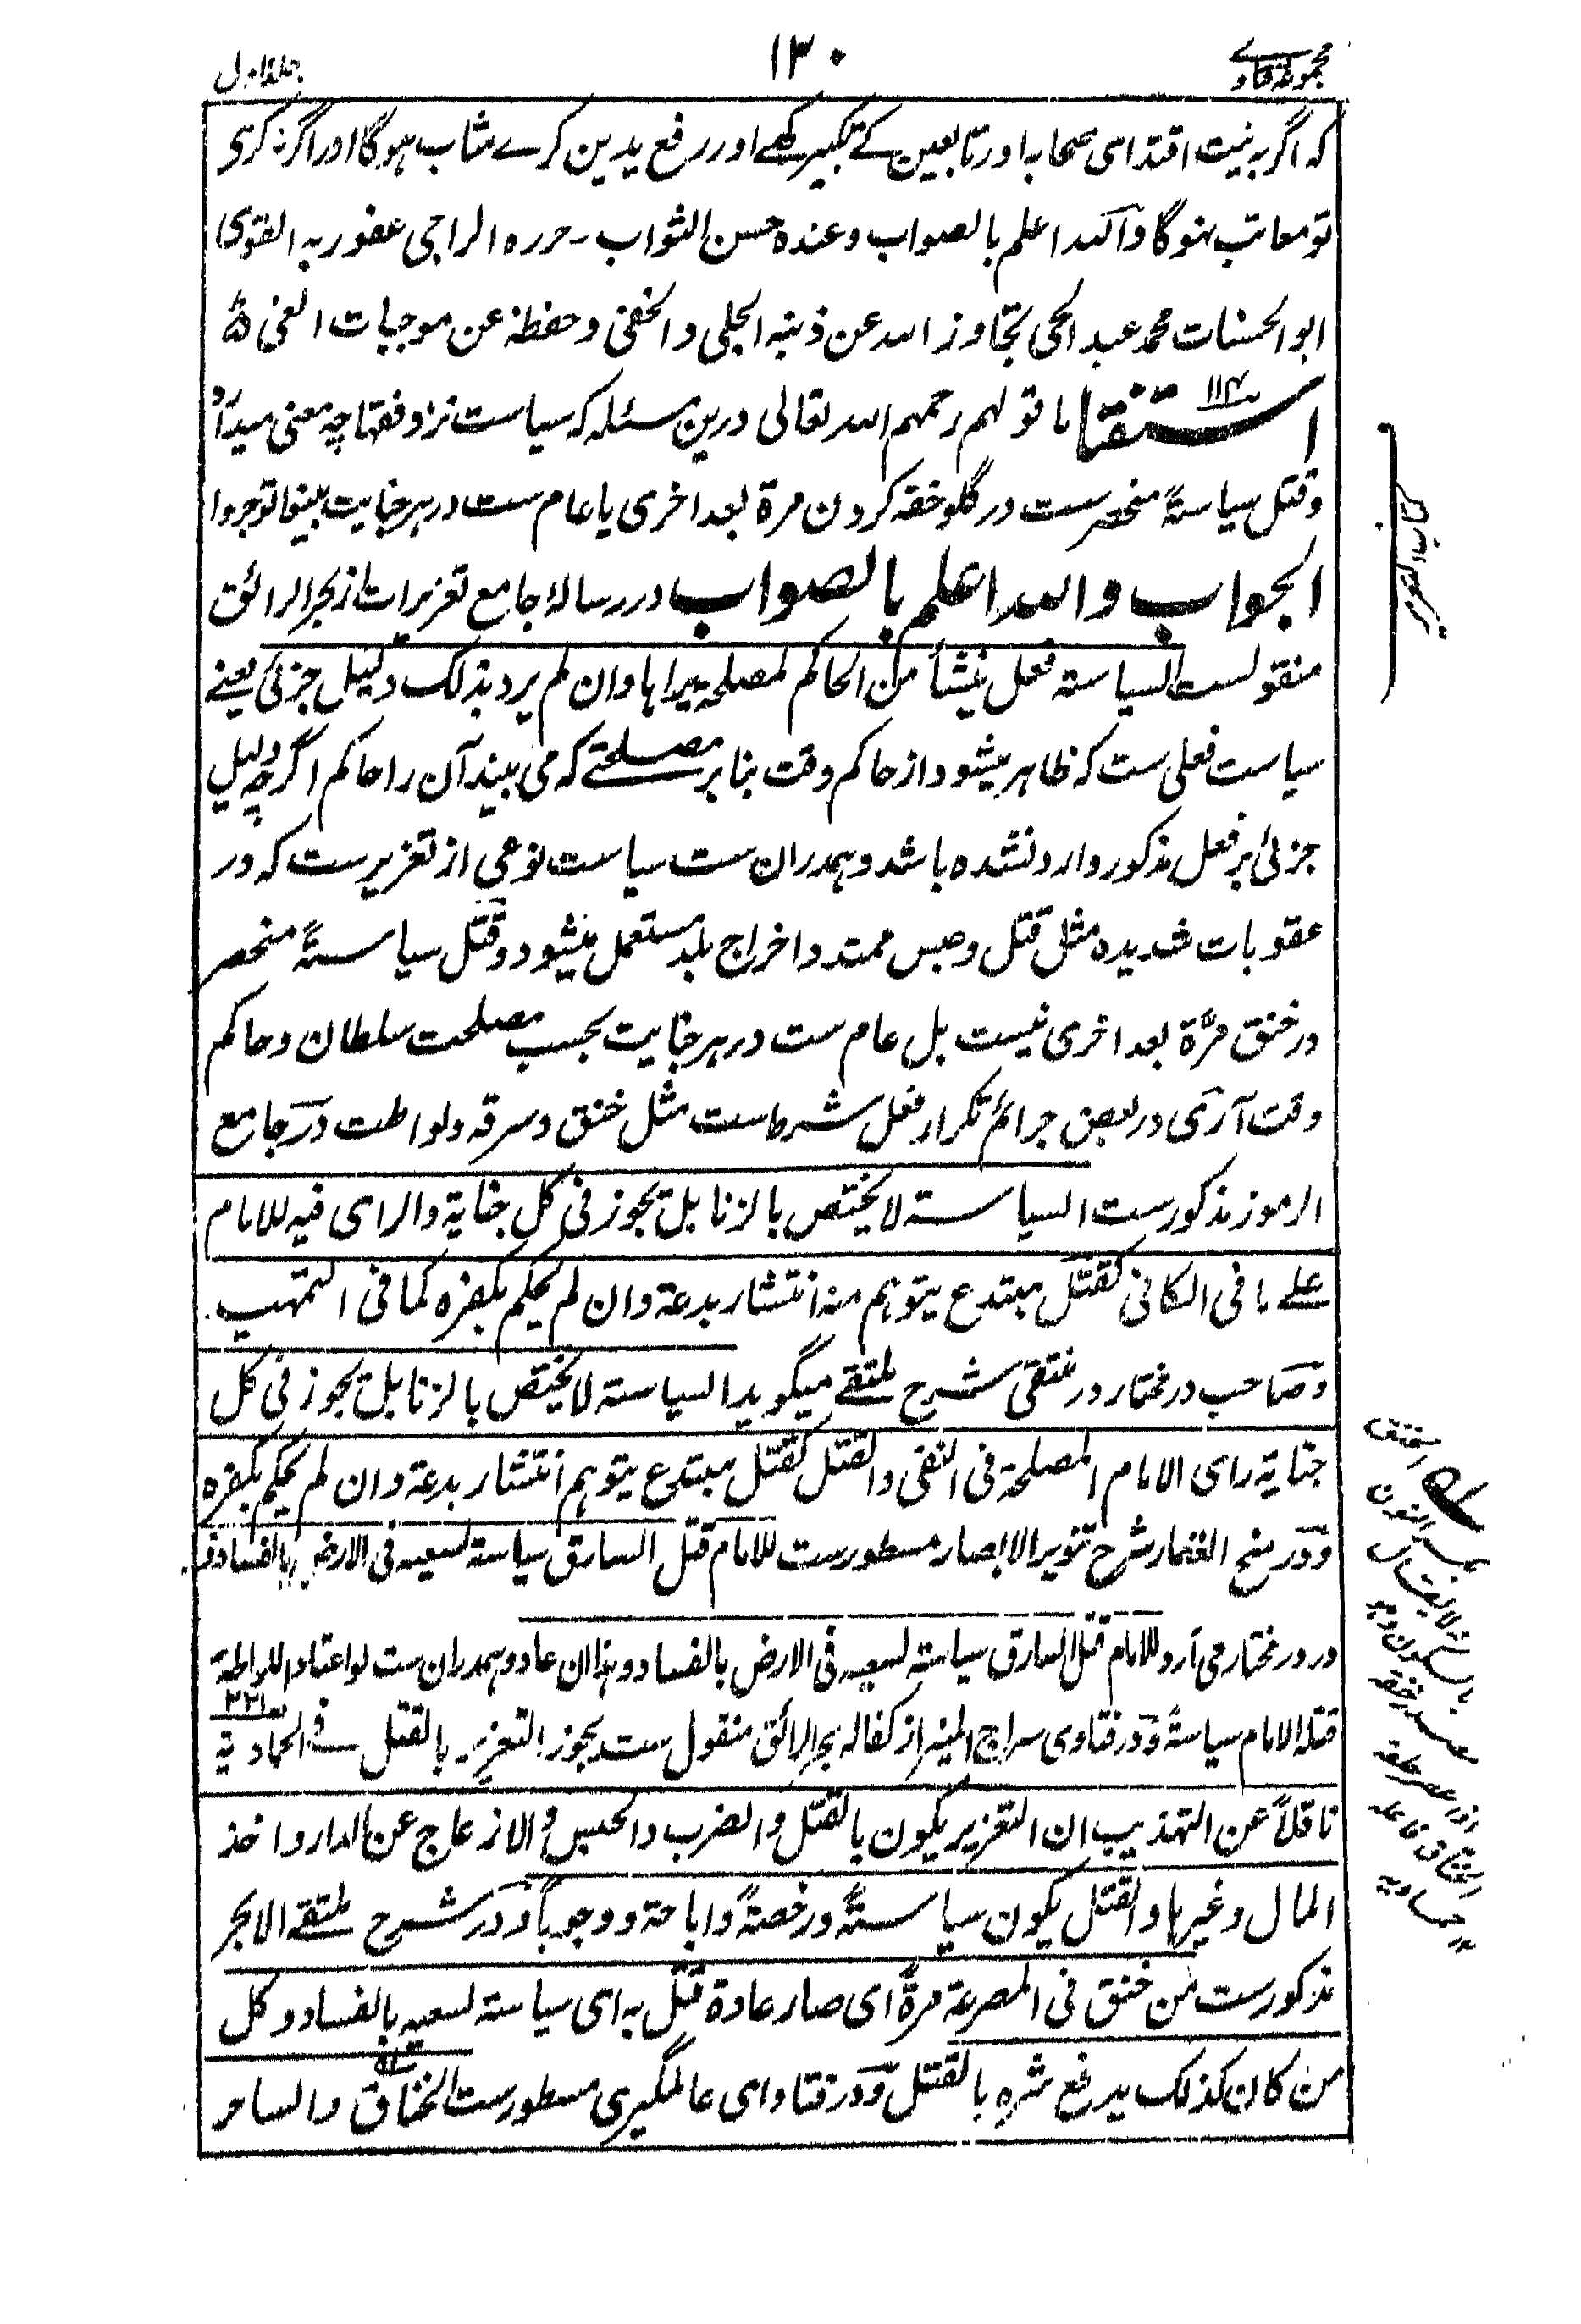 مجموعۂ فتاوے
۱۳۰
جلد اول
کہ اگر بہ نیت اقتدای صحابہ اور تابعین کے تکبیر کہے اور رفع یدین کرے مثاب ہوگا اور اگر نہ کری
تو معاتب نہوگا واللہ اعلم بالصواب وعندہ حسن الثواب ۔ حررہ الراجی عفو ربہ القوی
ابو الحسنات محمد عبد الحی تجاوز اللہ عن ذنبہ الجلی والخفی وحفظہ عن موجبات الغی
استفتا ۱۱۴ ما قولہم رحمہم اللہ تعالی درین مسئلہ کہ سیاست نزد فقہا چہ معنی میدارد
وقتل سیاسۃً منحصرست در گلو خفہ کردن مرۃ بعد اخری یا عام ست در ہر جنایت بینوا توجروا
الجواب واللہ اعلم بالصواب در رسالۂ جامع تعزیرات از بحر الرائق
منقولست السیاستہ فعل ینشأ من الحاکم لمصلحۃ یراہا وان لم یرد بذلک دلیل جزئی یعنے
سیاست فعلی ست کہ ظاہر میشود از حاکم وقت بنابر مصلحتے کہ می بیند آن را حاکم اگرچہ دلیل
جزئی بر فعل مذکور وارد نشدہ باشد وہمدران ست سیاست نوعی از تعزیرست کہ در
عقوبات شدیدہ مثل قتل وحبس ممتد واخراج بلد مستعمل میشود وقتل سیاسۃً منحصر
در خنق مرّۃ بعد اخری نیست بل عام ست در ہر جنایت بحسب مصلحت سلطان وحاکم
وقت آرَی در بعض جرائم تکرار فعل شرط است مثل خنق وسرقہ ولواطت ودر جامع
الرموز مذکورست السیاستہ لا یختص بالزنا بل یجوز فی کل جنایۃ والرای فیہ للامام
علے ما فی الکافی کقتل مبتدع یتوہم منہ انتشار بدعۃ وان لم یحکم بکفرہ کما فی التمہید
وصاحب در مختار در منتقی شرح ملتقے میگوید السیاستہ لا یختص بالزنا بل یجوز فی کل
جنایۃ رای الامام المصلحۃ فی النفی والقتل کقتل مبتدع یتوہم انتشار بدعۃ وان لم یحکم بکفرہ
ودر منح الغفار شرح تنویر الابصار مسطورست للامام قتل السارق سیاستہ لسعیہ فی الارض بالفساد
ودر در مختار می آرد للامام قتل السارق سیاستہ لسعیہ فی الارض بالفساد وہذا ان عاد وہمدران ست لو اعتاد اللواطۃ
قتلہ الامام سیاسۃً ودر فتاوی سراج المنیر از کفالہ بحر الرائق منقول ست یجوز التعزیر بالقتل فے الحمادیۃ
ناقلاً عن التہذیب ان التعزیر یکون بالقتل والضرب والحبس والازعاج عن الدار واخذ
المال وغیرہا والقتل یکون سیاسۃً ورخصۃً واباحۃ ووجوباً ودر شرح ملتقے الابحر
مذکورست من خنق فی المصر عۃ مرۃً ای صار عادۃ قتل بہ ای سیاستہ لسعیہ بالفساد وکل
من کان کذلک یدفع شرہ بالقتل ودر فتاوای عالمگیری مسطورست الخناق والساحر
کتاب التعزیر